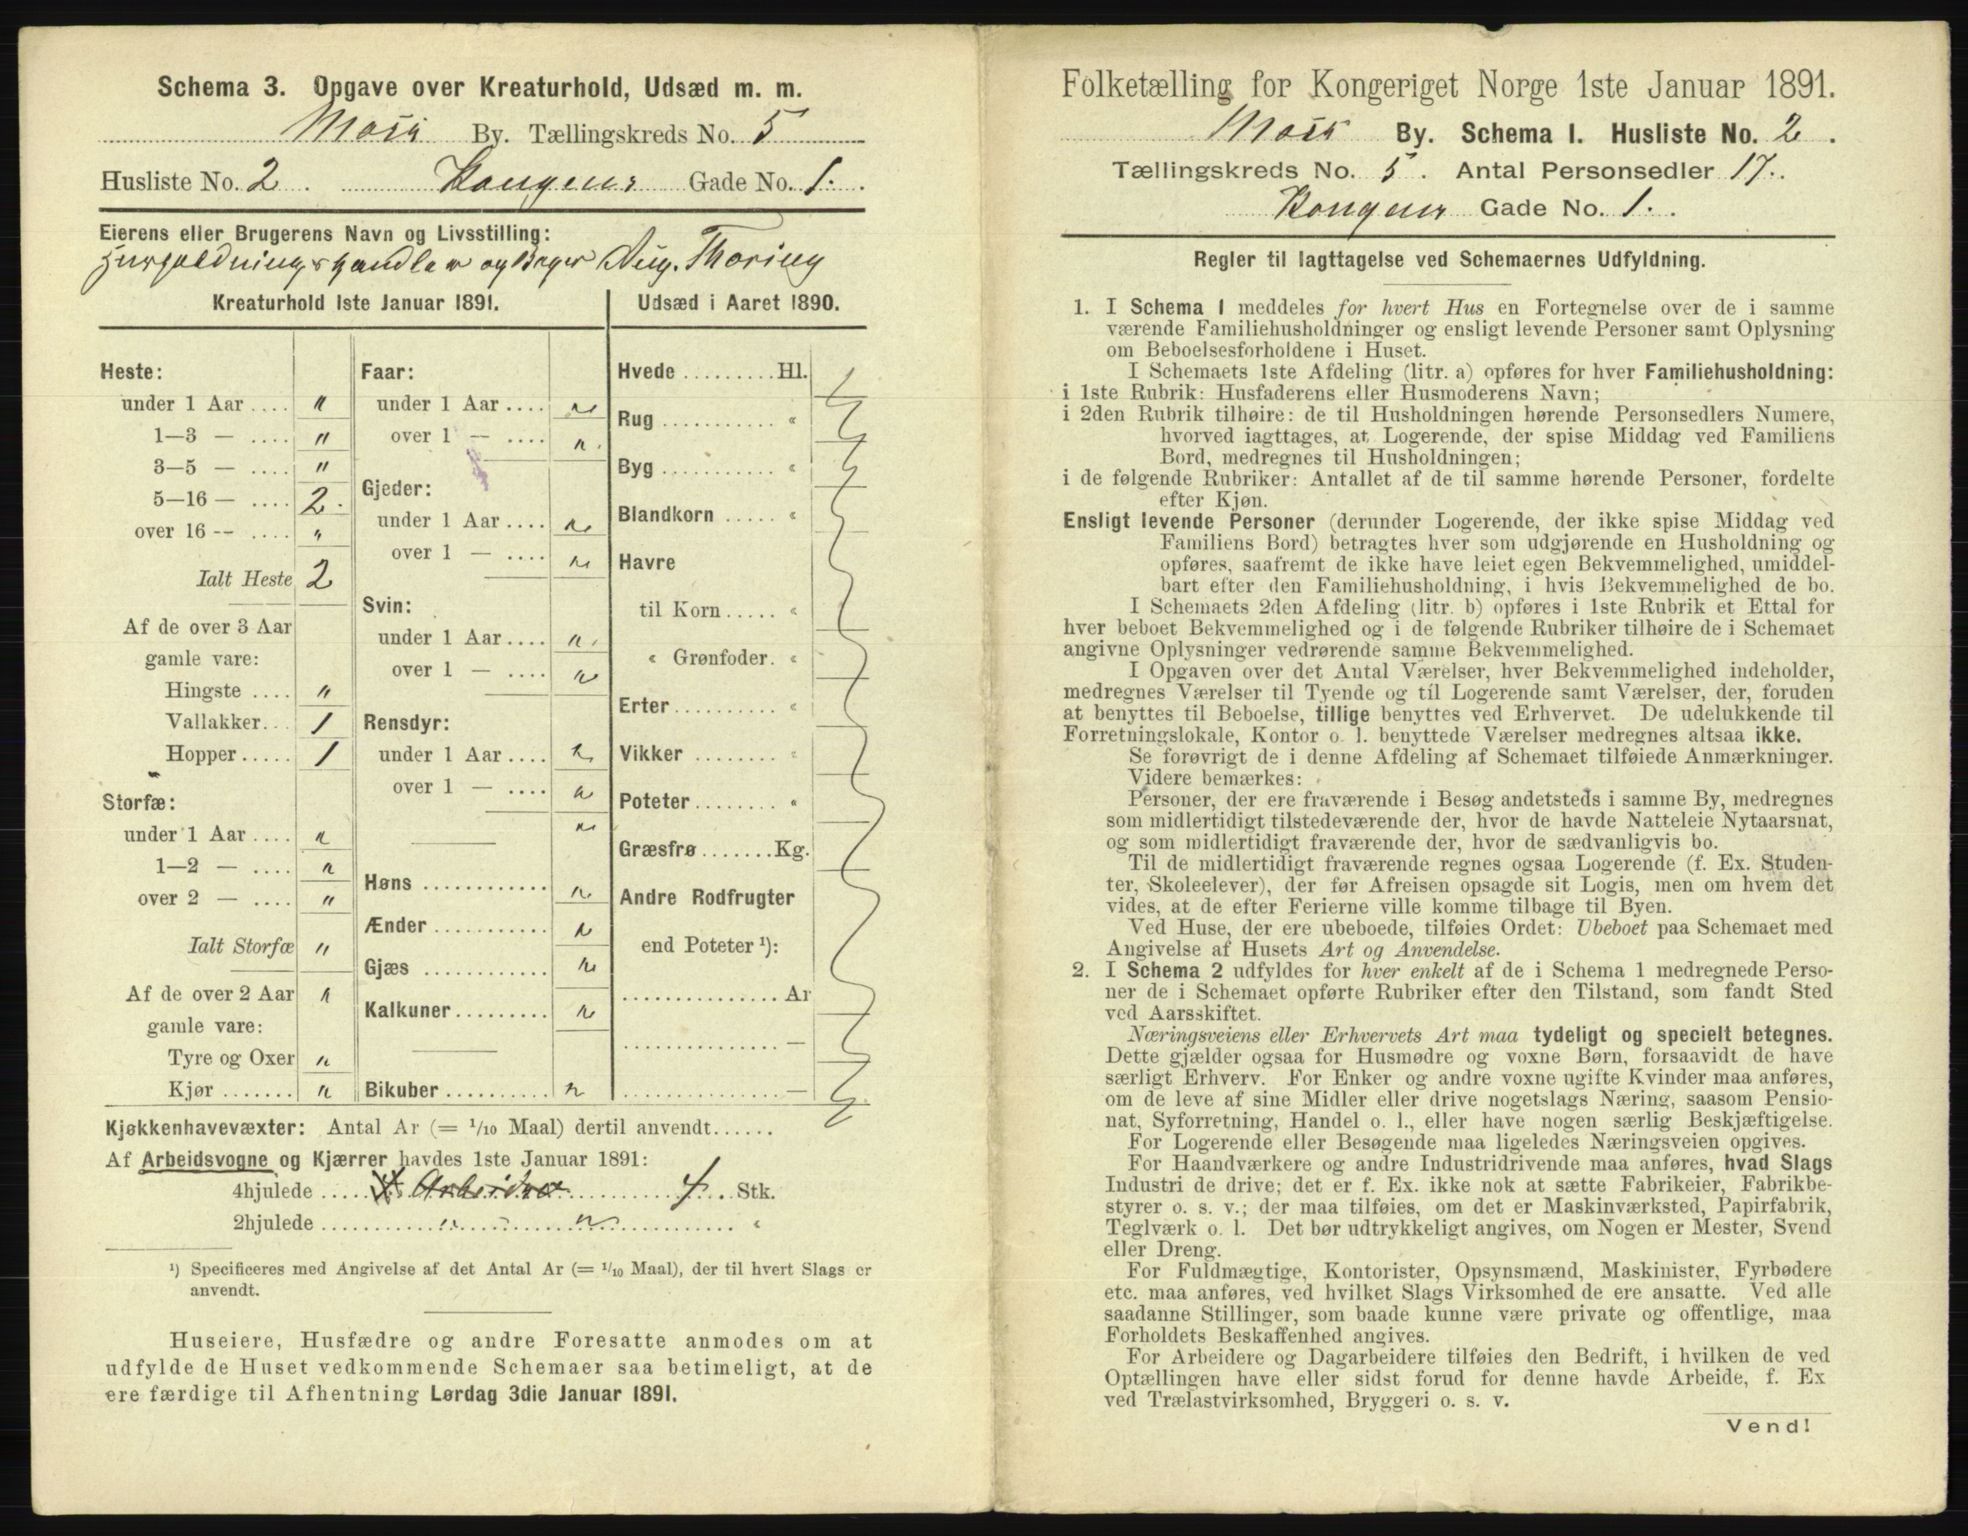 Schema 3. Opgave over Kreaturhold, Udsæd m. m.
Moss By. Tællingskreds No. 5
Husliste No. 2 . Kongens Gade No. 1.
Eierens eller Brugerens Navn og Livsstilling:
og Bager Aug. Thoring
Kreaturhold 1ste Januar 1891.
Heste:
under 1 Aar .... "
1—3 — .... "
3—5 — .... "
5—16 — .... 2.
over 16 -- .... "
Ialt Heste 2
Af de over 3 Aar
gamle vare:
Hingste .... "
Vallakker... 1
Hopper..... 1
Storfæ:
under 1 Aar .... "
1—2 — .... "
over 2 — .... "
Ialt Storfæ "
Af de over 2 Aar "
gamle vare:
Tyre og Oxer "
Kjør ....... "
Faar:
under 1 Aar .... "
over 1 — .... "
Gjeder:
under 1 Aar .... "
over 1 — .... "
Svin:
under 1 Aar .... "
over 1 — .... "
Rensdyr:
under 1 Aar .... "
over 1 — .... "
"
Høns ............ "
Ænder ........... "
Gjæs ............ "
Kalkuner ......... "
Bikuber .......... "
Udsæd i Aaret 1890.
Hvede ......... Hl.
Rug ........... «
Byg ........... «
Blandkorn ..... «
Havre
til Korn ..... «
« Grønfoder. «
Erter ......... «
Vikker ........ «
Poteter ........ «
Græsfrø ....... Kg.
Andre Rodfrugter
end Poteter ¹):
............... Ar
............... —
............... —
Kjøkkenhavevæxter: Antal Ar (= 1/10 Maal) dertil anvendt......
Af Arbeidsvogne og Kjærrer havdes 1ste Januar 1891:
4hjulede ..... 4 Stk.
2hjulede ..... " " «
¹) Specificeres med Angivelse af det Antal Ar (= 1/10 Maal), der til hvert Slags er
anvendt.
Huseiere, Husfædre og andre Foresatte anmodes om at
udfylde de Huset vedkommende Schemaer saa betimeligt, at de
ere færdige til Afhentning Lørdag 3die Januar 1891.
Folketælling for Kongeriget Norge 1ste Januar 1891.
Moss By. Schema 1. Husliste No. 2 .
Tællingskreds No. 5 . Antal Personsedler 17.
Kongens Gade No. 1.
Regler til Iagttagelse ved Schemaernes Udfyldning.
1. I Schema 1 meddeles for hvert Hus en Fortegnelse over de i samme
værende Familiehusholdninger og ensligt levende Personer samt Oplysning
om Beboelsesforholdene i Huset.
I Schemaets 1ste Afdeling (litr. a) opføres for hver Familiehusholdning:
i 1ste Rubrik: Husfaderens eller Husmoderens Navn;
i 2den Rubrik tilhøire: de til Husholdningen hørende Personsedlers Numere,
hvorved iagttages, at Logerende, der spise Middag ved Familiens
Bord, medregnes til Husholdningen;
i de følgende Rubriker: Antallet af de til samme hørende Personer, fordelte
efter Kjøn.
Ensligt levende Personer (derunder Logerende, der ikke spise Middag ved
Familiens Bord) betragtes hver som udgjørende en Husholdning og
opføres, saafremt de ikke have leiet egen Bekvemmelighed, umiddel-
bart efter den Familiehusholdning, i hvis Bekvemmelighed de bo.
I Schemaets 2den Afdeling (litr. b) opføres i 1ste Rubrik et Ettal for
hver beboet Bekvemmelighed og i de følgende Rubriker tilhøire de i Schemaet
angivne Oplysninger vedrørende samme Bekvemmelighed.
I Opgaven over det Antal Værelser, hver Bekvemmelighed indeholder,
medregnes Værelser til Tyende og til Logerende samt Værelser, der, foruden
at benyttes til Beboelse, tillige benyttes ved Erhvervet. De udelukkende til
Forretningslokale, Kontor o. l. benyttede Værelser medregnes altsaa ikke.
Se forøvrigt de i denne Afdeling af Schemaet tilføiede Anmærkninger.
Videre bemærkes:
Personer, der ere fraværende i Besøg andetsteds i samme By, medregnes
som midlertidigt tilstedeværende der, hvor de havde Natteleie Nytaarsnat,
og som midlertidigt fraværende der, hvor de sædvanligvis bo.
Til de midlertidigt fraværende regnes ogsaa Logerende (f. Ex. Studen-
ter, Skoleelever), der før Afreisen opsagde sit Logis, men om hvem det
vides, at de efter Ferierne ville komme tilbage til Byen.
Ved Huse, der ere ubeboede, tilføies Ordet: Ubeboet paa Schemaet med
Angivelse af Husets Art og Anvendelse.
2. I Schema 2 udfyldes for hver enkelt af de i Schema 1 medregnede Perso-
ner de i Schemaet opførte Rubriker efter den Tilstand, som fandt Sted
ved Aarsskiftet.
Næringsveiens eller Erhvervets Art maa tydeligt og specielt betegnes.
Dette gjælder ogsaa for Husmødre og voxne Børn, forsaavidt de have
særligt Erhverv. For Enker og andre voxne ugifte Kvinder maa anføres,
om de leve af sine Midler eller drive nogetslags Næring, saasom Pensio-
nat, Syforretning, Handel o. l., eller have nogen særlig Beskjæftigelse.
For Logerende eller Besøgende maa ligeledes Næringsveien opgives.
For Haandværkere og andre Industridrivende maa anføres, hvad Slags
Industri de drive; det er f. Ex. ikke nok at sætte Fabrikeier, Fabrikbe-
styrer o. s. v.; der maa tilføies, om det er Maskinværksted, Papirfabrik,
Teglværk o. l. Det bør udtrykkeligt angives, om Nogen er Mester, Svend
eller Dreng.
For Fuldmægtige, Kontorister, Opsynsmænd, Maskinister, Fyrbødere
etc. maa anføres, ved hvilket Slags Virksomhed de ere ansatte. Ved alle
saadanne Stillinger, som baade kunne være private og offentlige, maa
Forholdets Beskaffenhed angives.
For Arbeidere og Dagarbeidere tilføies den Bedrift, i hvilken de ved
Optællingen have eller sidst forud for denne havde Arbeide, f. Ex
ved Trælastvirksomhed, Bryggeri o. s. v.
Vend!